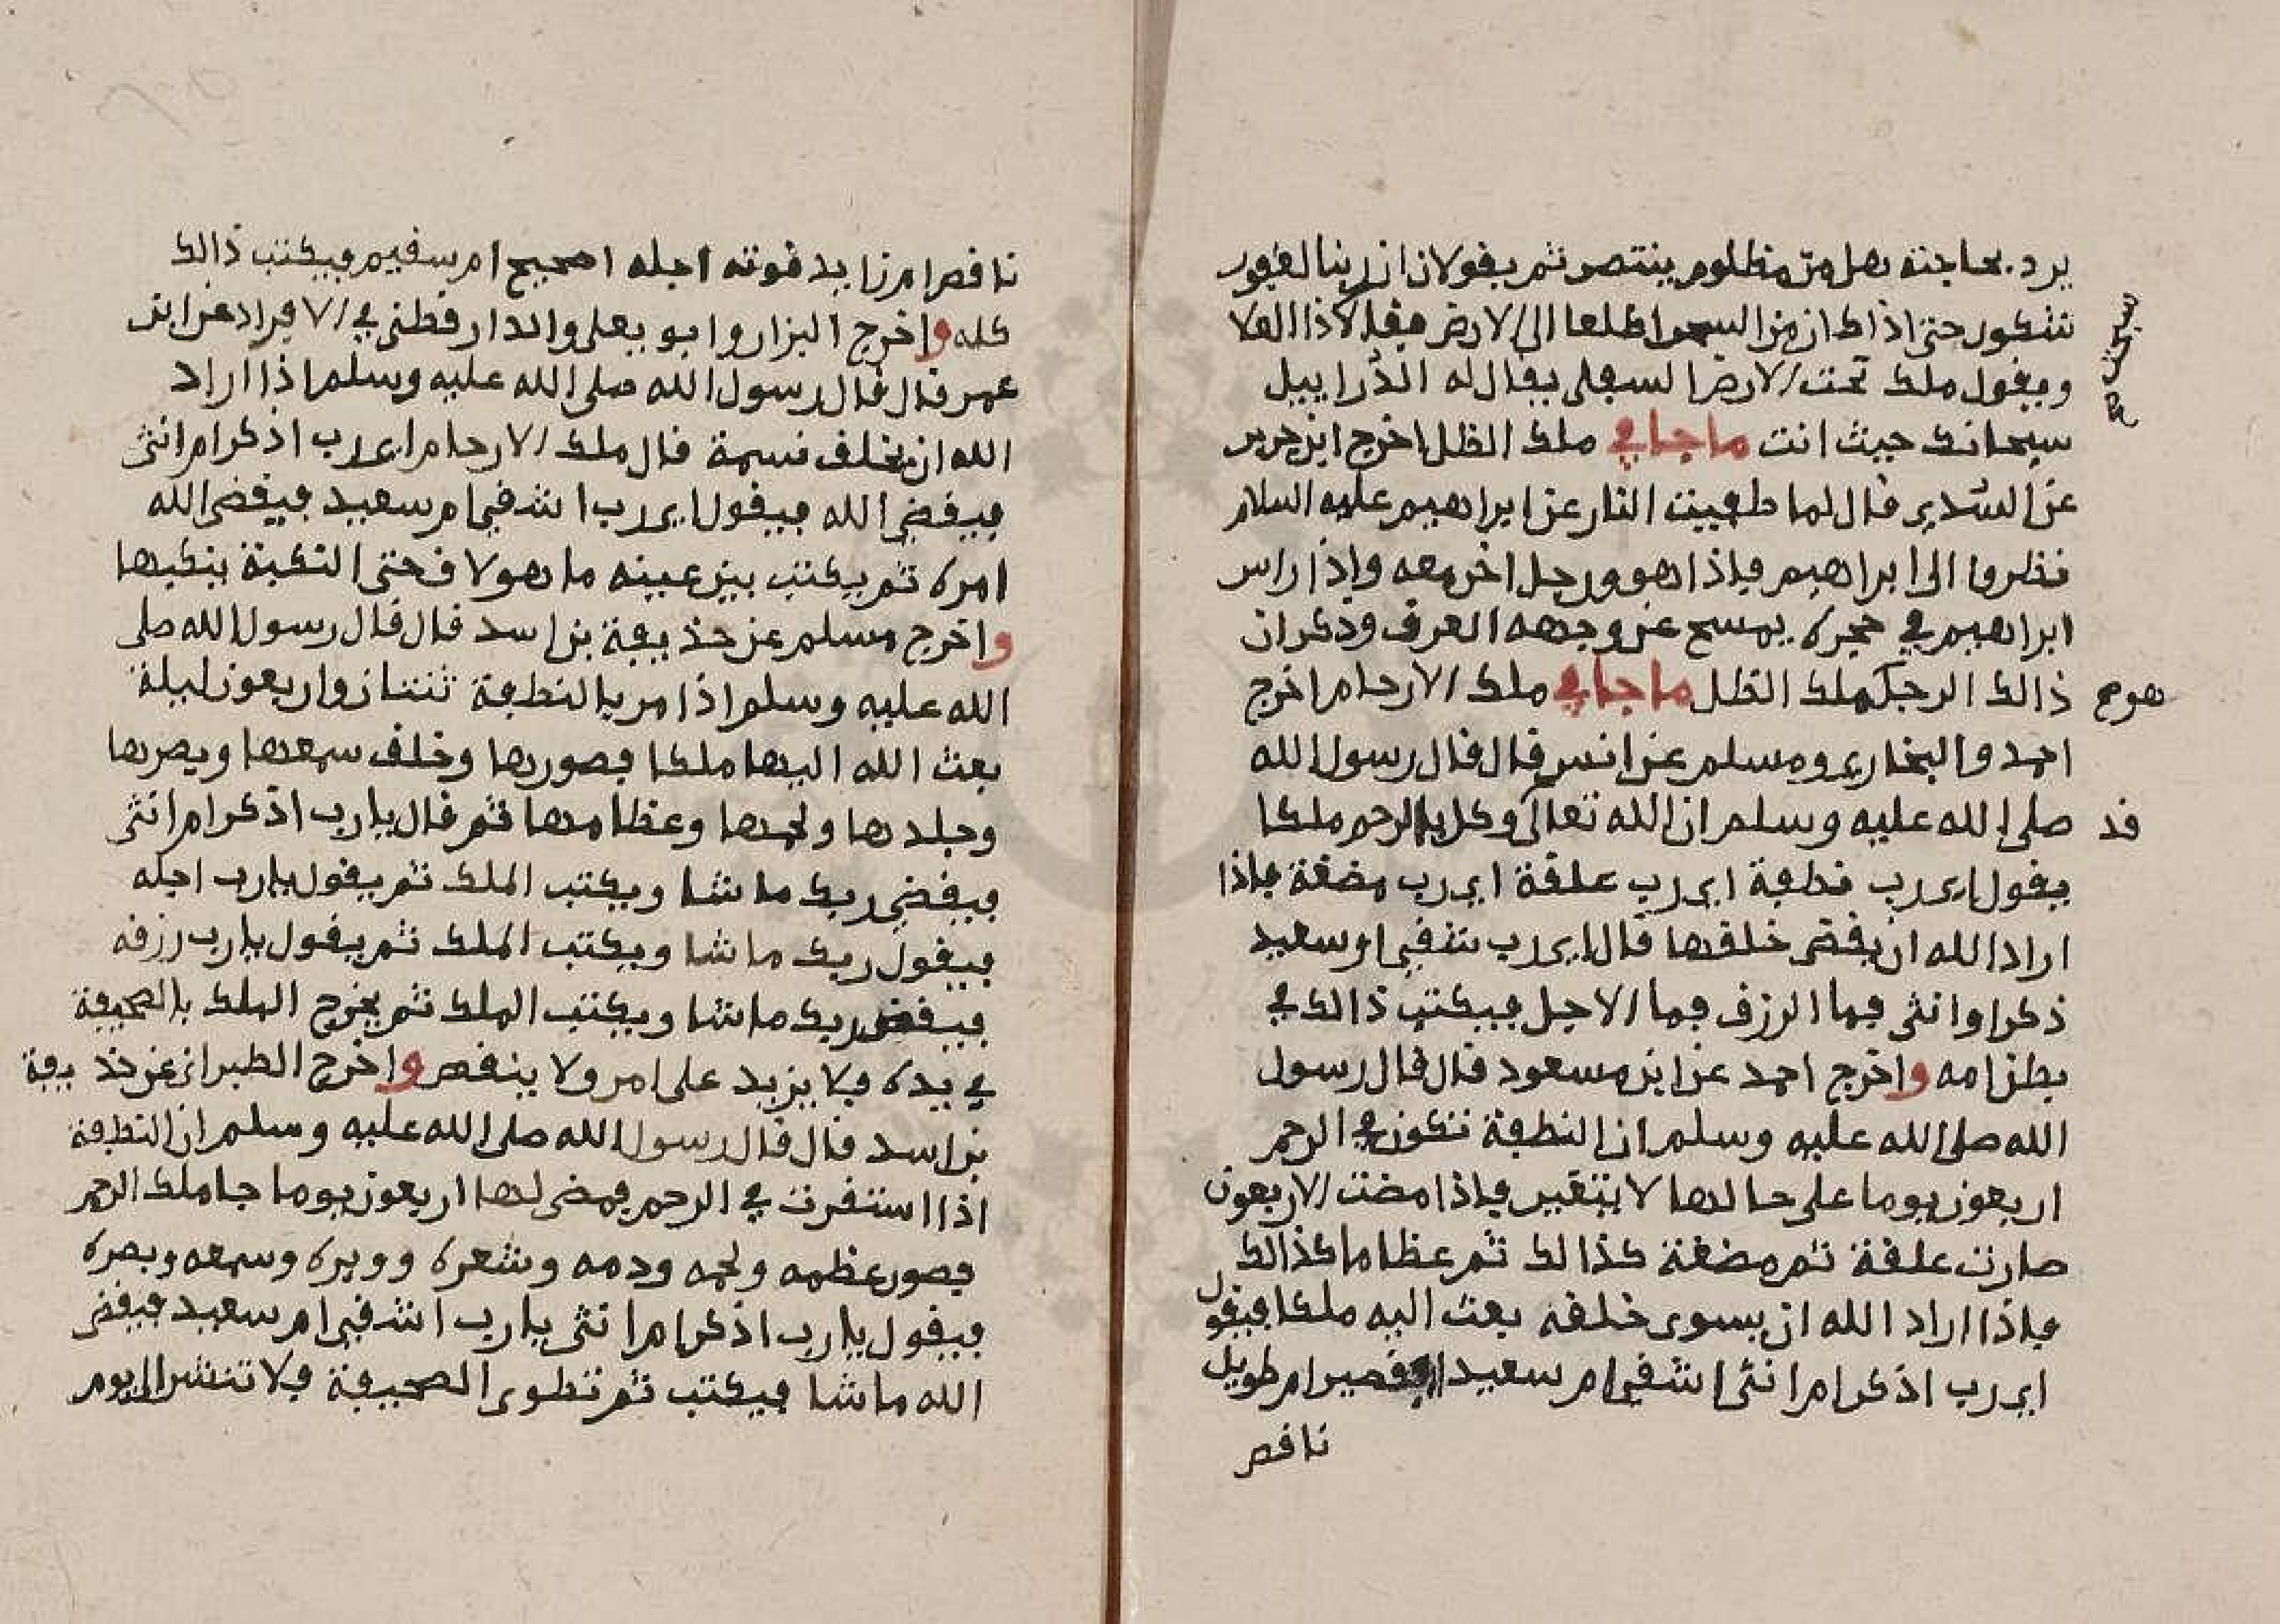 يرد بحاجته هل من مظلوم ينتصر ثم يقولان ان ربنا لغفور
شكور حتى اذا كان من السحر اطلعا الى الارض فقلا كذا العلا
ويقول ملك تحت الارض السفلى يقال له الذراييل
سبحانك حيث انت ما جا في ملك الظل اخرج ابن جرير
عن السدي قال لما طفيت النار عن ابراهيم عليه السلام
نظروا الى ابراهيم فاذا هو ورجل اخر معه واذا راس
ابراهيم في حجره يمسح عن وجهه العرق وذكر ان
ذالك الرجل ملك الظل ما جا في ملك الارحام اخرج
هو
احمد والبخاري ومسلم عن انس قال قال رسول الله
صلى الله عليه وسلم ان الله تعالى وكل بالرحم ملكا
قد
يقول اي رب نطفة اي رب علقة اي رب مضغة فاذا
اراد الله ان يقضي خلقها قال اي رب شقي او سعيد
ذكر او انثى فما الرزق فما الاجل فيكتب ذالك في
بطن امه واخرج احمد عن ابن مسعود قال قال رسول
الله صلى الله عليه وسلم ان النطفة تكون في الرحم
اربعون يوما على حالها لا يتغير فاذا مضت الاربعون
صارت علقة ثم مضغة كذالك ثم عظاما كذالك
فاذا اراد الله ان يسوى خلقه بعث اليه ملكا فيقول
اي رب اذكر ام انثى اشقي ام سعيد اقصير ام طويل
ناقص
ناقص ام زايد قوته اجله اصحيح ام سقيم فيكتب ذالك
كله واخرج البزار وابو يعلى والدارقطني في الافراد عن ابن
عمر قال قال رسول الله صلى الله عليه وسلم اذا اراد
الله ان يخلق نسمة قال ملك الارحام اي رب اذكر ام انثى
فيقضي الله فيقول اي رب اشقي ام سعيد فيقضي الله
امره ثم يكتب بين عينيه ما هو لاق حتى النكبة ينكبها
واخرج مسلم عن حذيفة بن اسد قال قال رسول الله صلى
الله عليه وسلم اذا مر بالنطفة ثنتان واربعون ليلة
بعث الله اليها ملكا فصورها وخلق سمعها وبصرها
وجلدها ولحمها وعظامها ثم قال يا رب اذكر ام انثى
فيقضي ربك ما شا ويكتب الملك ثم يقول يا رب اجله
فيقول ربك ما شا ويكتب الملك ثم يقول يا رب رزقه
فيقضي ربك ما شا ويكتب الملك ثم يخرج الملك بالصحيفة
في يده فلا يزيد على امر ولا ينقص واخرج الطبراني عن حذيفة
بن اسد قال قال رسول الله صلى الله عليه وسلم ان النطفة
اذا استقرت في الرحم فمضى لها اربعون يوما جا ملك الرحم
فصور عظمه ولحمه ودمه وشعره ووبره وسمعه وبصره
فيقول يا رب اذكر ام انثى يا رب اشقي ام سعيد فيقضي
الله ما شا فيكتب ثم تطوى الصحيفة فلا تنشر الى يوم